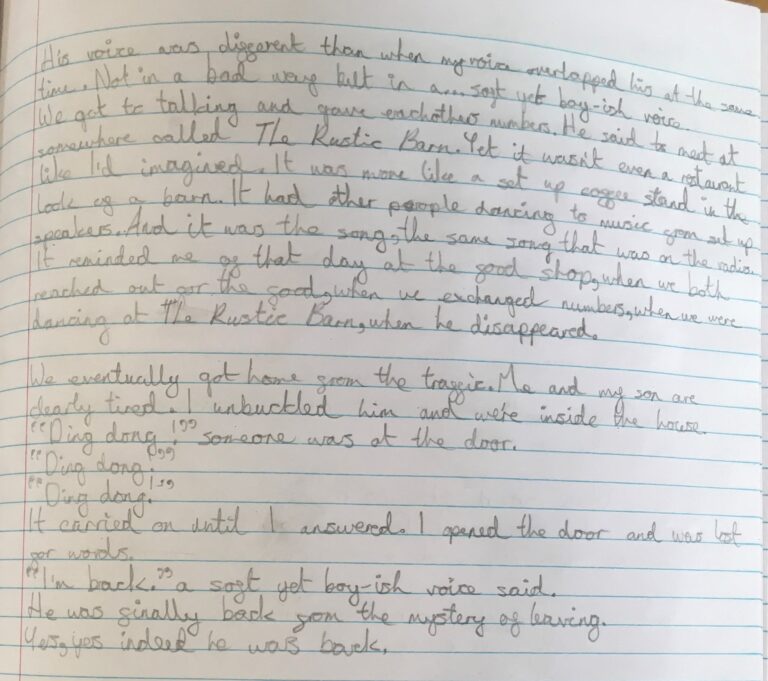 His voice was different than when my voice overlapped his at the same
time. Not in a bad way but in a... soft yet boy-ish voice.
We got to talking and gave eachothers numbers. He said to meet at
somewhere called The Rustic Barn. Yet it wasn't even a restaurent
like I'd imagined. It was more like a set up coffee stand in the
look of a barn. It had other people dancing to music from set up
speakers. And it was the song, the same song that was on the radio.
It reminded me of that day at the food shop, when we both
reached out for the food, when we exchanged numbers, when we were
dancing at The Rustic Barn, when he disappeared.
We eventually got home from the traffic. Me and my son are
clearly tired. I unbuckled him and we're inside the house.
"Ding dong!" someone was at the door.
"Ding dong!"
"Ding dong!"
It carried on until I answered. I opened the door and was lost
for words.
"I'm back." a soft yet boy-ish voice said.
He was finally back from the mystery of leaving.
Yes, yes indeed he was back.